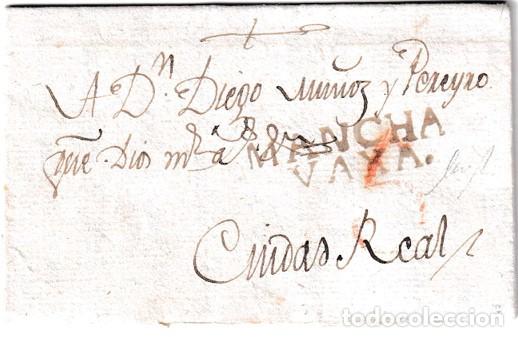 A Dn. Diego Muñoz y Pereyro
que Dios m.s a.s
MANCHA
VAXA.
Ciudad Real
todocoleccion.net